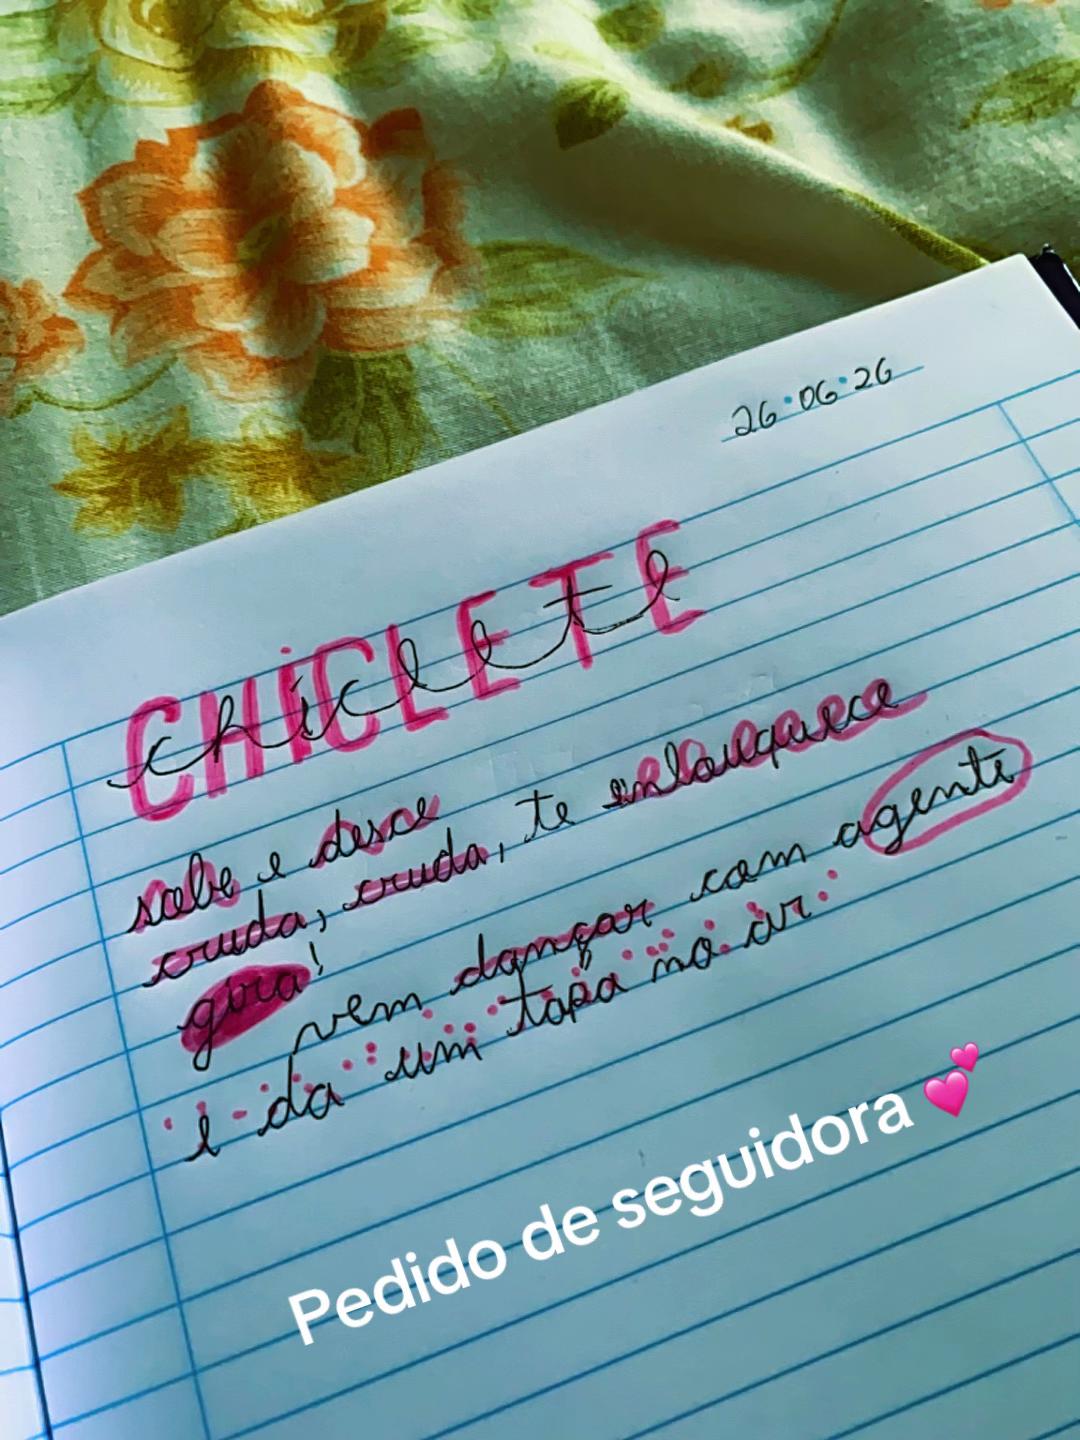 26.06.26
CHICLETE
chiclete
sobe e desce
cruda, cruda, te enlouquece
gira!
vem dançar com agente
e da um tapa no ar
Pedido de seguidora 💕